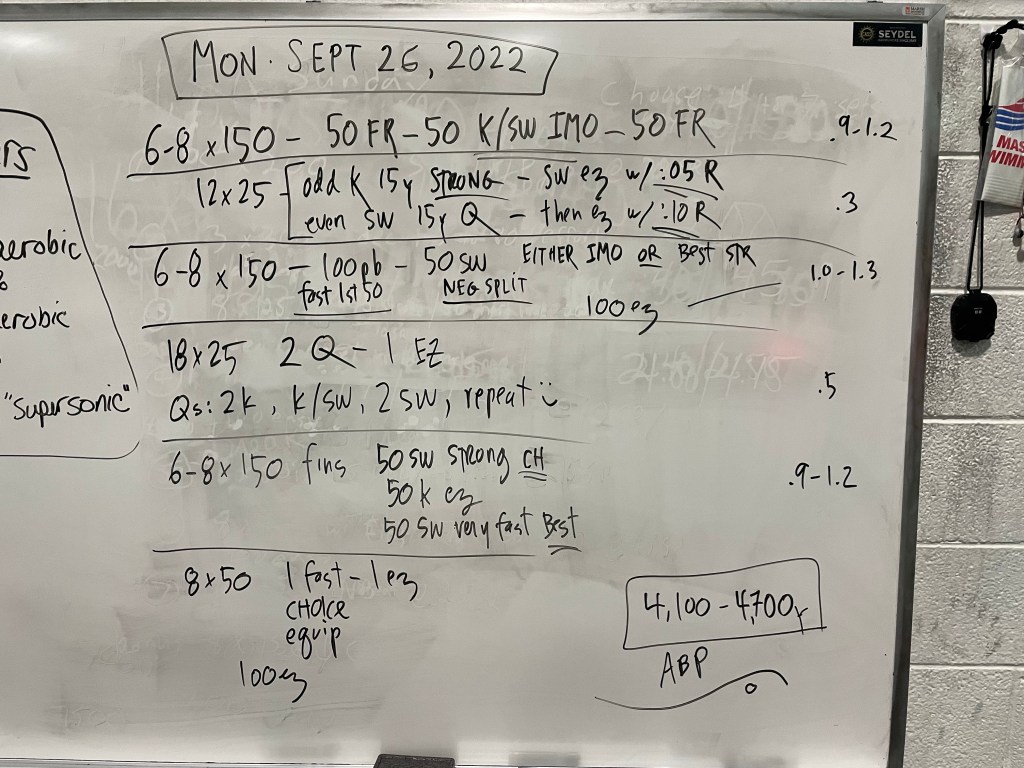 SEYDEL
MON. SEPT 26, 2022
6-8 x 150 - 50 FR - 50 K/SW IMO - 50 FR .9-1.2
12x25 odd K 15y STRONG - SW ez w/ :05 R
even SW 15y Q - then ez w/ :10 R .3
6-8 x 150 - 100 pb - 50 SW EITHER IMO OR Best STR 1.0-1.3
fast 1st 50 NEG SPLIT
100 ez
18x25 2 Q - 1 EZ
Qs: 2k, k/sw, 2 sw, repeat .5
6-8 x 150 fins 50 SW STRONG CH
50 K ez .9-1.2
50 SW very fast Best
8x50 1 fast - 1 ez
CHOICE
equip
100 ez
4,100 - 4,700y
ABP
rs
erobic
erobic
"Supersonic"
MAS
WIMM